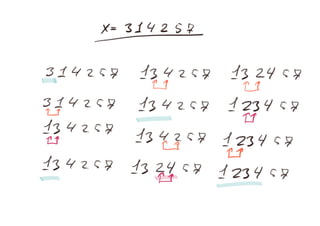 X= 314257
314257
314257
134257
134257
134257
134257
134257
132457
132457
123457
123457
123457